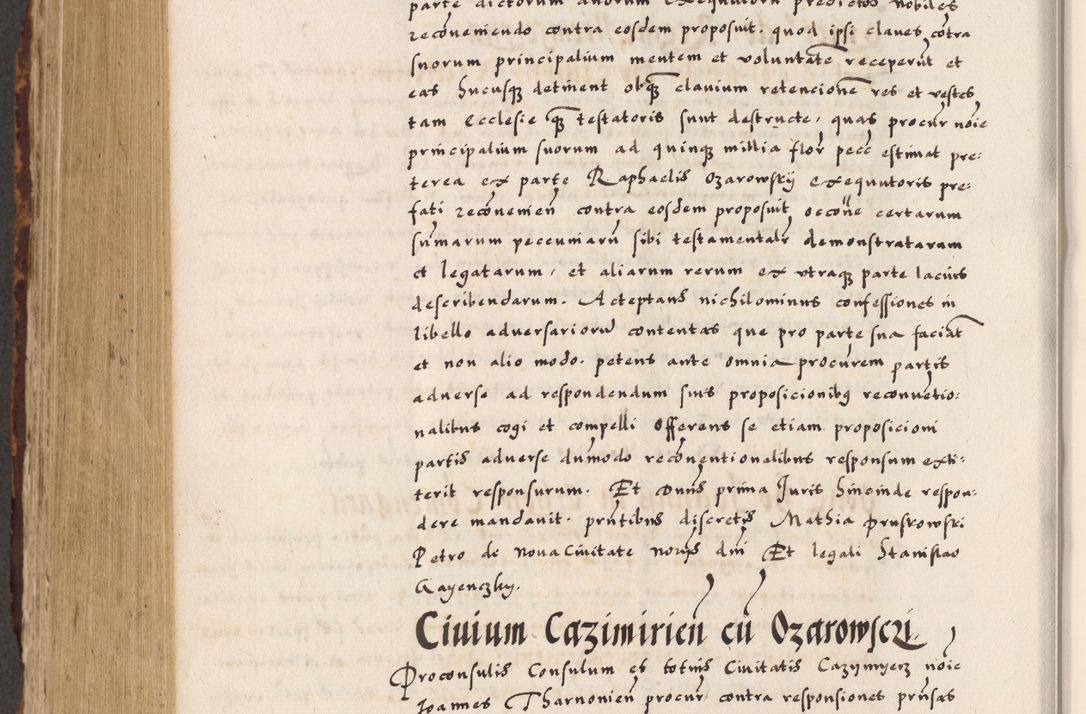 parte dictorum dnorum exequutoru predictos nobiles
recōveniendo contra eosdem proposuit. quod ipsi claves cōtra
suorum principalium mentem et voluntatē receperūt et
eas hucusqȝ detinent obqȝ clavium retencionē res et vestes
tam Ecclesie qȝ testatoris sunt destructe, quas procur noīe
principalium suorum ad quinqȝ millia flor pecc estimat pre:
terea ex parte Raphaelis Ozarowskij exequutoris pre:
fati recōvenien contra eosdem proposuit occōne certarum
sūmarum pecuniarū sibi testamentalr demonstrataram
et legatarum, et aliarum rerum ex utraqȝ parte lacius
describendarum. Acceptans nichilominus confessiones in
libello adversariorū contentas que pro parte sua faciāt
et non alio modo. petens ante omnia procurem partis
adverse ad respondendum suis proposicionibȝ reconvētio:
nalibus cogi et compelli Offerens se etiam proposicioni
partis adverse dūmodo recōventionalibus responsum exti:
terit responsurum. Et Dnus prima Juris hincinde respon:
dere mandavit. prntibus discretis Mathia Pruskowski
Petro de Nova Civitate norijs dni Et legali Stanislao
Gayenczky.
Civium Cazimirien cū Ozarowscij
Proconsulis Consulum et totius Civitatis Cazymyerz noīe
Joannes Tharnonien procur contra responsiones prnsas